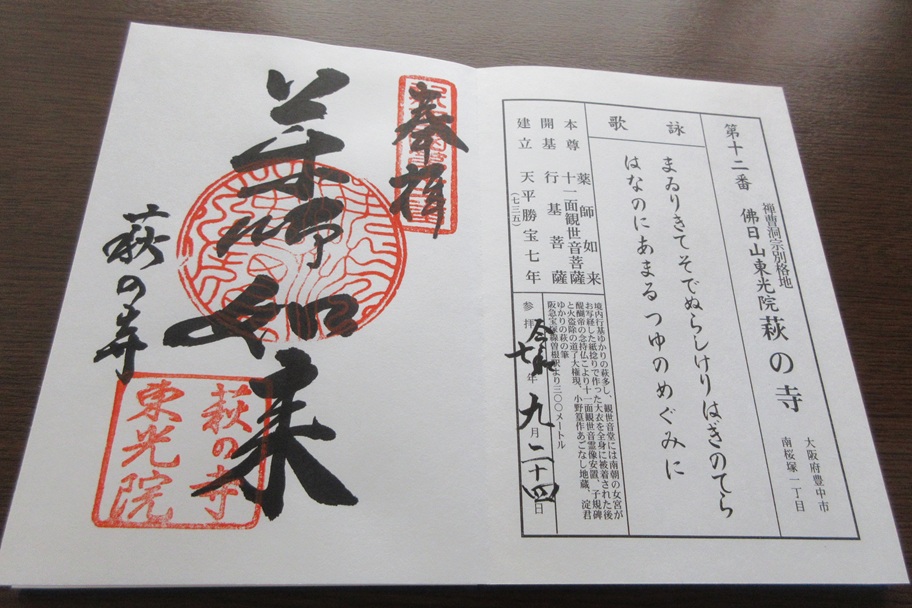 第十二番
禅曹洞宗別格地
佛日山東光院 萩の寺
大阪府豊中市
南桜塚一丁目
詠歌
まゐりきてそでぬらしけりはぎのてら
はなのにあまるつゆのめぐみに
本尊 薬師如来
十一面観世音菩薩
開基 行基菩薩
建立 天平勝宝七年
(七三五)
境内行基ゆかりの萩多し、観世音堂には南朝の女宮が
お写経した紙捻りで作った大衣を全身に被着された後
醍醐帝の念持仏こより十一面観世音霊像安置、子規碑
と火盗除の道了大権現、小野篁作あごなし地蔵、淀君
ゆかりの萩の筆
阪急宝塚線曽根駅より三〇〇メートル
参拝 令和七年九月二十四日
奉拝
薬師如来
萩の寺
萩の寺
東光院